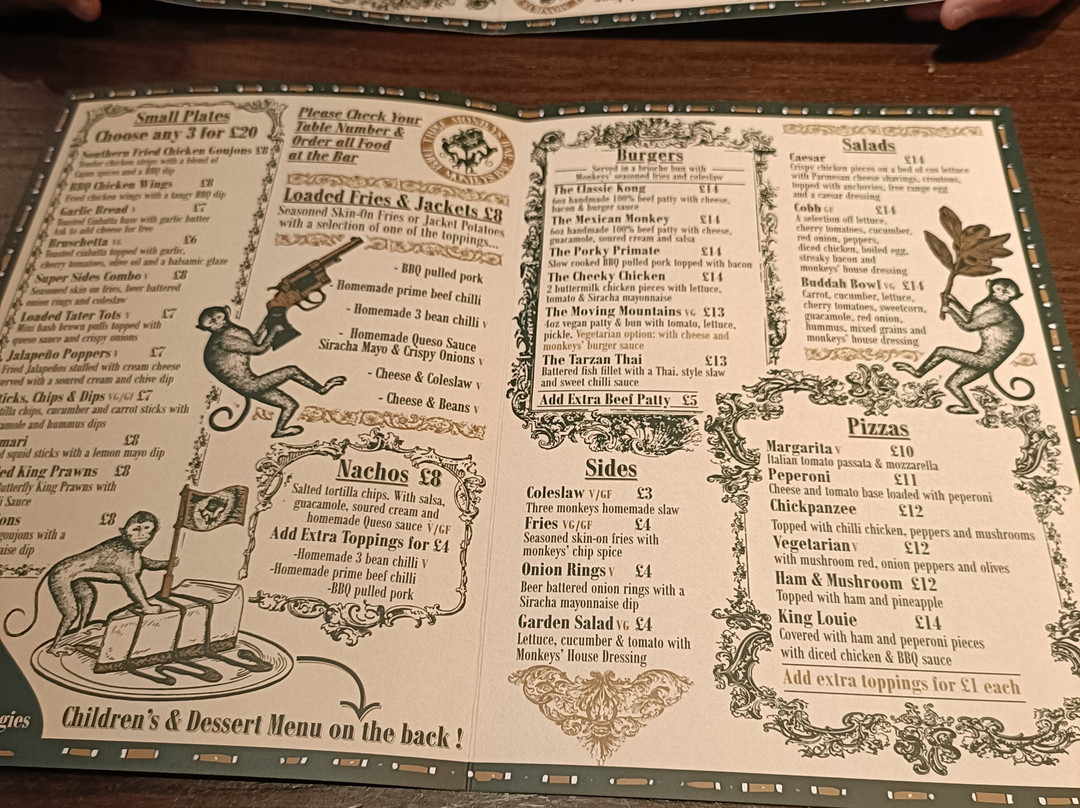 Small Plates
Choose any 3 for £20
Southern Fried Chicken Goujons £8
Tender chicken strips with a blend of
Cajun spices and a BBQ dip
BBQ Chicken Wings £8
Fried chicken wings with a tangy BBQ dip
Garlic Bread V £7
Toasted Ciabatta base with garlic butter
Ask to add cheese for free
Bruschetta VG £6
Toasted ciabatta topped with garlic,
cherry tomatoes, olive oil and a balsamic glaze
Super Sides Combo V £8
Seasoned skin on fries, beer battered
onion rings and coleslaw
Loaded Tater Tots V £7
Mini hash brown puffs topped with
queso sauce and crispy onions
Jalapeño Poppers V £7
Fried Jalapeños stuffed with cream cheese
served with a soured cream and chive dip
ticks, Chips & Dips VG/GF £7
tilla chips, cucumber and carrot sticks with
amole and hummus dips
mari £8
d squid sticks with a lemon mayo dip
ed King Prawns £8
utterfly King Prawns with
i Sauce
ons £8
goujons with a
aise dip
gies
Please Check Your
Table Number &
Order all Food
at the Bar
THE THREE MONKEYS
Loaded Fries & Jackets £8
Seasoned Skin-On Fries or Jacket Potatoes
with a selection of one of the toppings...
- BBQ pulled pork
- Homemade prime beef chilli
- Homemade 3 bean chilli V
- Homemade Queso Sauce
Siracha Mayo & Crispy Onions V
- Cheese & Coleslaw V
- Cheese & Beans V
Nachos £8
Salted tortilla chips. With salsa,
guacamole, soured cream and
homemade Queso sauce V/GF
Add Extra Toppings for £4
-Homemade 3 bean chilli V
-Homemade prime beef chilli
-BBQ pulled pork
Children's & Dessert Menu on the back !
Burgers
Served in a brioche bun with
Monkeys' seasoned fries and coleslaw
The Classic Kong £14
6oz handmade 100% beef patty with cheese,
bacon & burger sauce
The Mexican Monkey £14
6oz handmade 100% beef patty with cheese,
guacamole, soured cream and salsa
The Porky Primate £14
Slow cooked BBQ pulled pork topped with bacon
The Cheeky Chicken £14
2 buttermilk chicken pieces with lettuce,
tomato & Siracha mayonnaise
The Moving Mountains VG £13
4oz vegan patty & bun with tomato, lettuce,
pickle. Vegetarian option: with cheese and
monkeys' burger sauce
The Tarzan Thai £13
Battered fish fillet with a Thai. style slaw
and sweet chilli sauce
Add Extra Beef Patty £5
Sides
Coleslaw V/GF £3
Three monkeys homemade slaw
Fries VG/GF £4
Seasoned skin-on fries with
monkeys' chip spice
Onion Rings V £4
Beer battered onion rings with a
Siracha mayonnaise dip
Garden Salad VG £4
Lettuce, cucumber & tomato with
Monkeys' House Dressing
Salads
Caesar £14
Crispy chicken pieces on a bed of cos lettuce
with Parmesan cheese shavings, croutons,
topped with anchovies, free range egg
and a caesar dressing
Cobb GF £14
A selection off lettuce,
cherry tomatoes, cucumber,
red onion, peppers,
diced chicken, boiled egg,
streaky bacon and
monkeys' house dressing
Buddah Bowl VG £14
Carrot, cucumber, lettuce,
cherry tomatoes, sweetcorn,
guacamole, red onion,
hummus, mixed grains and
monkeys' house dressing
Pizzas
Margarita V £10
Italian tomato passata & mozzarella
Peperoni £11
Cheese and tomato base loaded with peperoni
Chickpanzee £12
Topped with chilli chicken, peppers and mushrooms
Vegetarian V £12
with mushroom red, onion peppers and olives
Ham & Mushroom £12
Topped with ham and pineapple
King Louie £14
Covered with ham and peperoni pieces
with diced chicken & BBQ sauce
Add extra toppings for £1 each